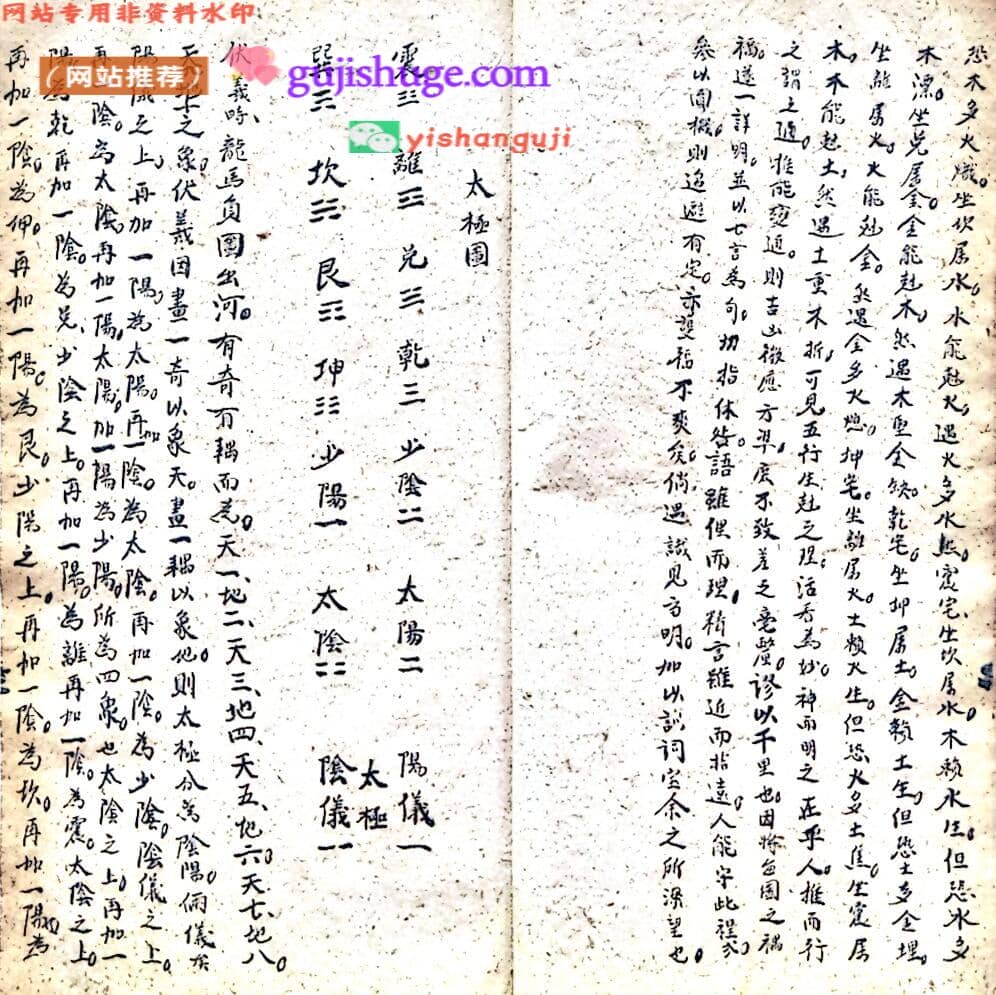 网站专用非资料水印
(网站推荐)
gujishuge.com
yishanguji
恐木多火熾。坐坎属水。水能尅火。遇火多水熱。震宅坐坎属水。木賴水生。但恐水多
木漂。坐兑属金。金能尅木。然遇木堅金缺。乾宅坐坤属土。金賴土生。但恐土多金埋。
坐離属火。火能尅金。然遇金多火熄。坤宅坐離属火。土賴火生。但恐火多土焦。坐震属
木。木能尅土。然遇土重木折。可見五行生尅之理。活看為妙。神而明之。在乎人。推而行
之謂之通。推能变通。則吉凶微應方準。庶不致差之毫釐。谬以千里也。因将每圖之禍
福。逐一詳明。並以七言為句。切指休咎。語雖俚而理精。言雖近而指遠。人能守此程式
參以圓機。則追避有定。亦㕠福不爽矣。倘遇識見高明。加以訓詞。
太極圖
震☳ 離☲ 兑☱ 乾☰ 少陰 太陽 陽儀
太極
巽☴ 坎☵ 艮☶ 坤☷ 少陽 太陰 陰儀
伏羲時。龍馬負圖出河。有奇有耦而為。天一、地二、天三、地四、天五、地六、天七、地八。
之象。伏羲因畫一奇以象天。畫一耦以象地。則太極分為陰陽俩儀矣
陽儀之上。再加一陽。為太陽。再加一陰。為太陰。再加一陰。為少陰。陰儀之上。
再一陰。為太陰。再加一陽。太陽。加一陽為少陽。所為四象也。太陰之上。再加一
陽。為乾。再加一陰。為兑。少陰之上。再加一陽。為離。再加一陰。為震。太陰之上。
再加一陰。為坤。再加一陽。為艮。少陽之上。再加一陰。為坎。再加一陽。為